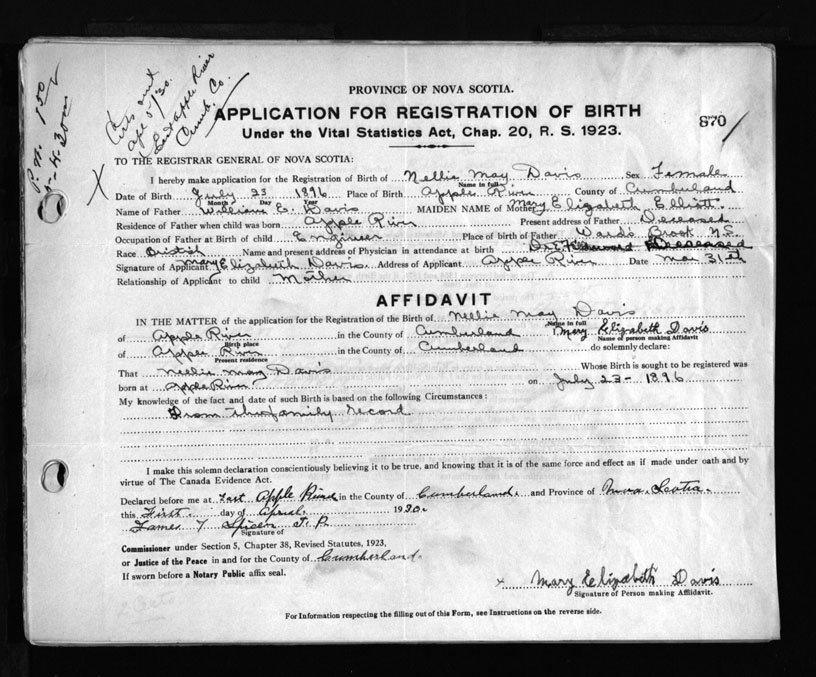 P.M. 150
Certs sent
Apl 5/30.
East Apple River
Cumb. Co.
870
PROVINCE OF NOVA SCOTIA.
APPLICATION FOR REGISTRATION OF BIRTH
Under the Vital Statistics Act, Chap. 20, R. S. 1923.
TO THE REGISTRAR GENERAL OF NOVA SCOTIA:
I hereby make application for the Registration of Birth of Nellie May Davis Sex Female
Name in full
Date of Birth July 23 1896 Place of Birth Apple River County of Cumberland
Month Day Year
Name of Father William E. Davis MAIDEN NAME of Mother Mary Elizabeth Elliott
Residence of Father when child was born Apple River Present address of Father Deceased
Occupation of Father at Birth of child Engineer Place of birth of Father Wards Brook N.S.
Race British Name and present address of Physician in attendance at birth Dr. Deceased
Signature of Applicant Mary Elizabeth Davis Address of Applicant Apple River Date Mar 31st
Relationship of Applicant to child Mother
AFFIDAVIT
IN THE MATTER of the application for the Registration of the Birth of Nellie May Davis
Name in full
of Apple River in the County of Cumberland Mary Elizabeth Davis
Birth place Name of person making Affidavit
of Apple River in the County of Cumberland do solemnly declare:
Present residence
That Nellie May Davis Whose Birth is sought to be registered was
born at Apple River on July 23 - 1896
My knowledge of the fact and date of such Birth is based on the following Circumstances:
From the family record
I make this solemn declaration conscientiously believing it to be true, and knowing that it is of the same force and effect as if made under oath and by
virtue of The Canada Evidence Act.
Declared before me at East Apple River in the County of Cumberland and Province of Nova Scotia.
this First day of April 1930.
James T Spicer J. P.
Signature of
Commissioner under Section 5, Chapter 38, Revised Statutes, 1923,
or Justice of the Peace in and for the County of Cumberland
If sworn before a Notary Public affix seal.
x Mary Elizabeth Davis
Signature of Person making Affidavit.
For Information respecting the filling out of this Form, see Instructions on the reverse side.